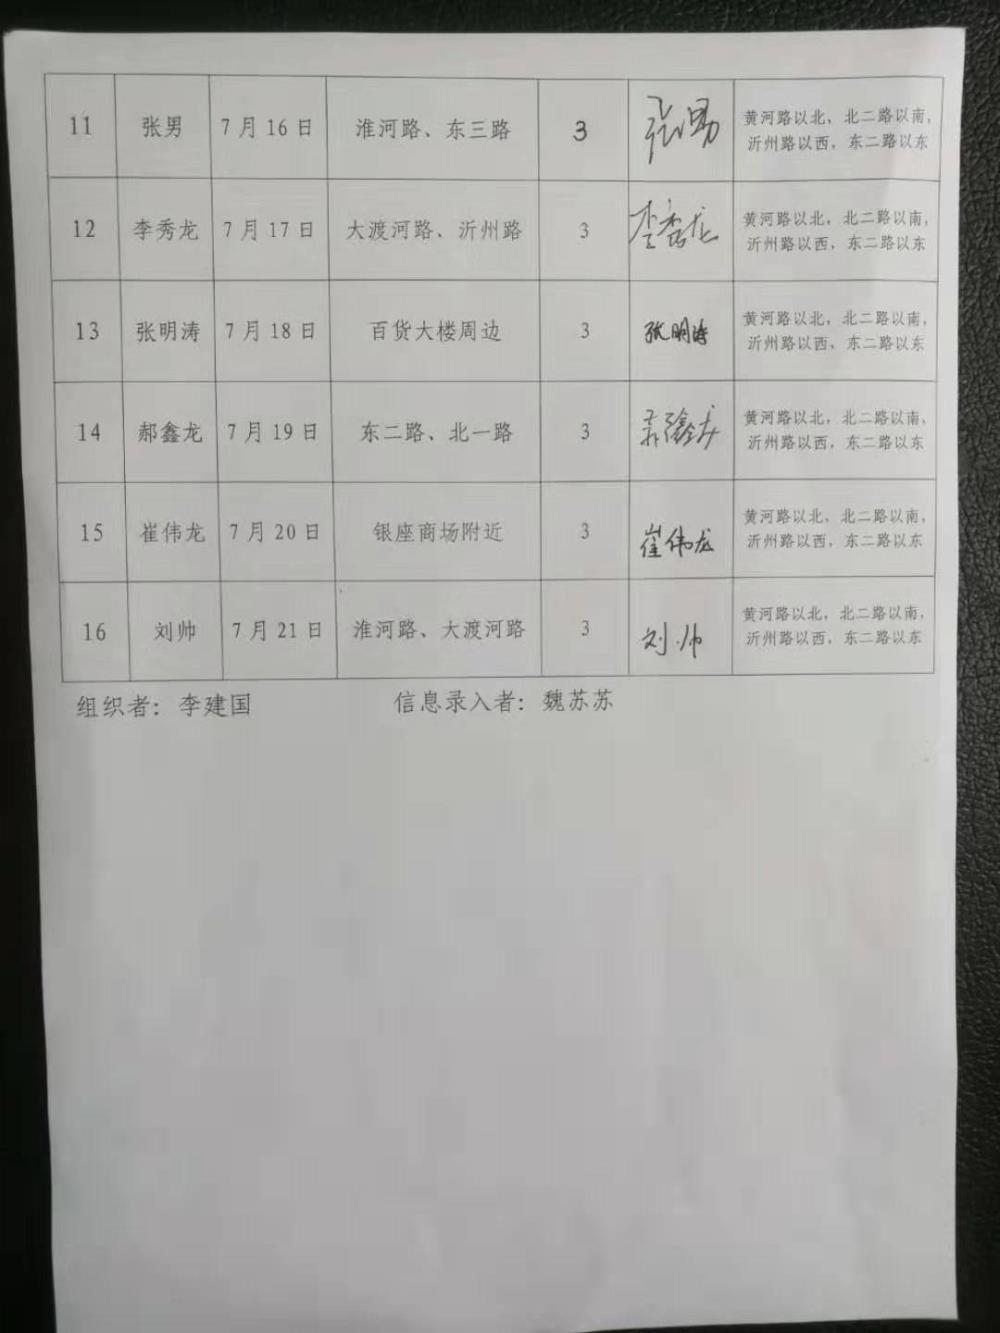 11 张男 7月16日 淮河路、东三路 3 张男 黄河路以北，北二路以南，
沂州路以西，东二路以东
12 李秀龙 7月17日 大渡河路、沂州路 3 李秀龙 黄河路以北，北二路以南，
沂州路以西，东二路以东
13 张明涛 7月18日 百货大楼周边 3 张明涛 黄河路以北，北二路以南，
沂州路以西，东二路以东
14 郝鑫龙 7月19日 东二路、北一路 3 郝鑫龙 黄河路以北，北二路以南，
沂州路以西，东二路以东
15 崔伟龙 7月20日 银座商场附近 3 崔伟龙 黄河路以北，北二路以南，
沂州路以西，东二路以东
16 刘帅 7月21日 淮河路、大渡河路 3 刘帅 黄河路以北，北二路以南，
沂州路以西，东二路以东
组织者：李建国 信息录入者：魏苏苏